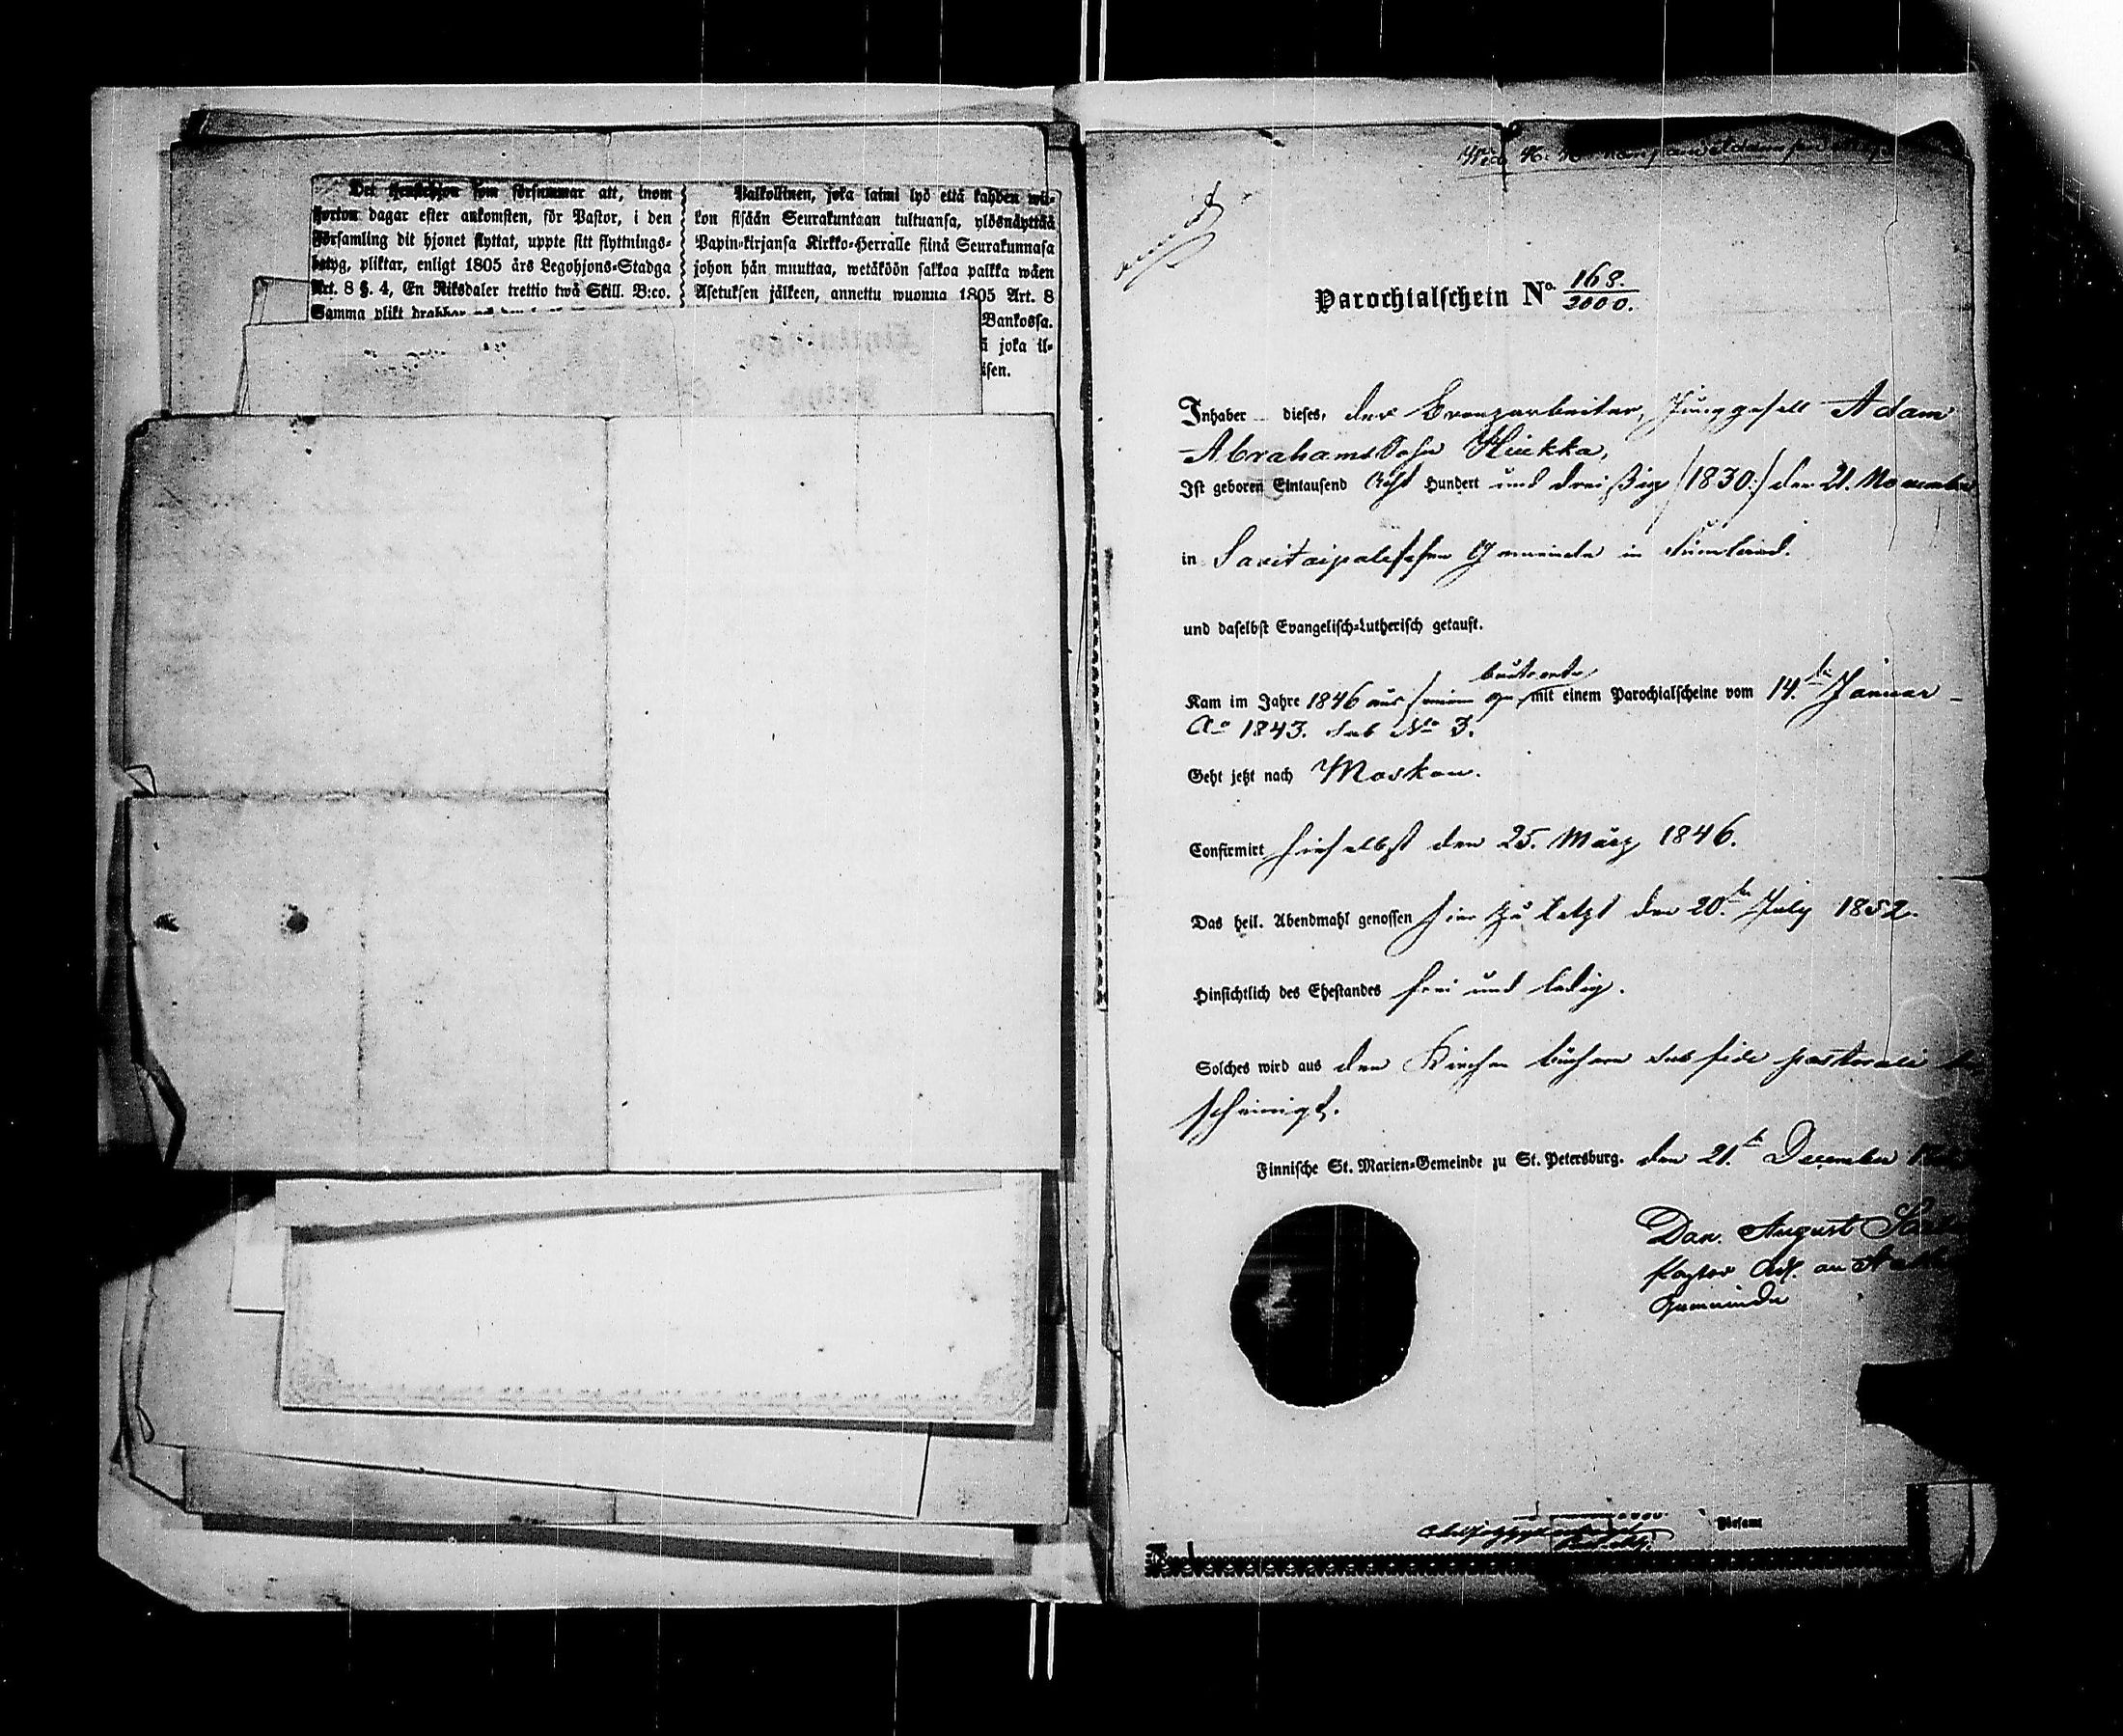 Det som försummar att, inom
fjorton dagar efter ankomsten, för Pastor, i den
Församling dit hjonet flyttat, uppte sitt flyttnings-
betyg, pliktar, enligt 1805 års Legohjons-Stadga
Art. 8 §. 4, En Riksdaler trettio twå Skill. B:co.
Samma plikt drabbar
Palkollinen, joka laimi lyö että kahden wii-
kon sisään Seurakuntaan tultuansa, ylösnäyttää
Papin-kirjansa Kirkko-Herralle siinä Seurakunnasa
johon hän muuttaa, wetäköön sakkoa palkka wäen
Asetuksen jälkeen, annettu wuonna 1805 Art. 8
Bankossa.
joka il-
Parochialschein No 168.
2000.
Inhaber dieses, der Bronzarbeiter, Junggesell Adam
Abrahams Sohn Hiukka,
Ist geboren Eintausend Acht Hundert und dreißig /1830:/ den 21. November
in Savitaipaleschen Gemeinde in Finnland.
und daselbst Evangelisch-Lutherisch getauft.
Kam im Jahre 1846 aus mit einem Parochialscheine vom 14. Januar
Ao 1843. sub No 3.
Geht jetzt nach Moskau.
Confirmirt hieselbst den 25. März 1846.
Das heil. Abendmahl genossen hier zu letzt den 20. July 1852.
Hinsichtlich des Ehestandes frei und ledig.
Solches wird aus den Kirchenbüchern sub fide pastorali be
scheinigt.
Finnische St. Marien-Gemeinde zu St. Petersburg. den 21. December
Dan. August
Pastor Adj. an
Gemeinde